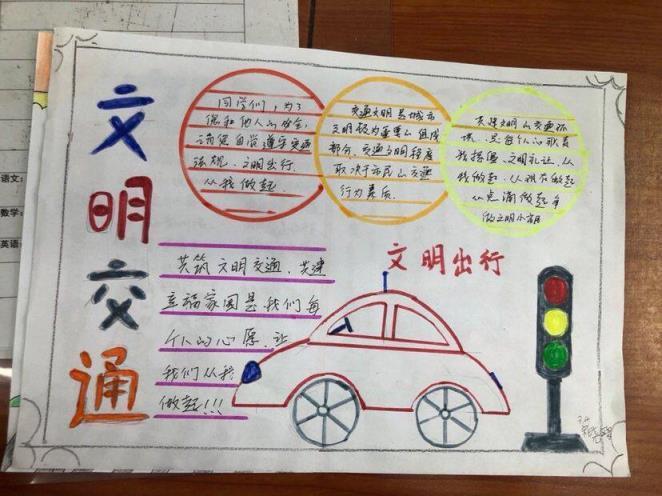 文明交通
同学们,为了
你和他人的安全,
请您自觉遵守交通
法规,文明出行.
从我做起.
交通文明是城市
文明极为重要的组成
部分,交通文明程度
取决于市民的交通
行为素质.
共建文明的交通环
境,是每个人的职责
我携德,文明礼让,从
我做起,从现在做起
从点滴做起争
做文明小
文明出行
共筑文明交通、共建
幸福家园是我们每
个人的心愿,让
我们从我
做起!!!
语文:
数学:
英语: